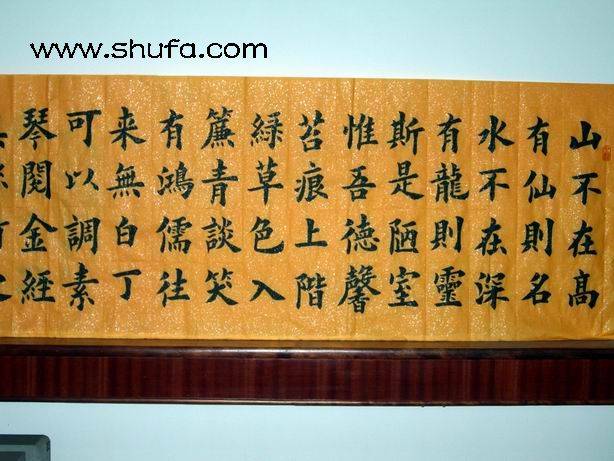 www.shufa.com
山不在髙
有仙則名
水不在深
有龍則靈
斯是陋室
惟吾德馨
苔痕上階
緑草色入
簾青談笑
有鴻儒往
来無白丁
可以調素
琴閱金經